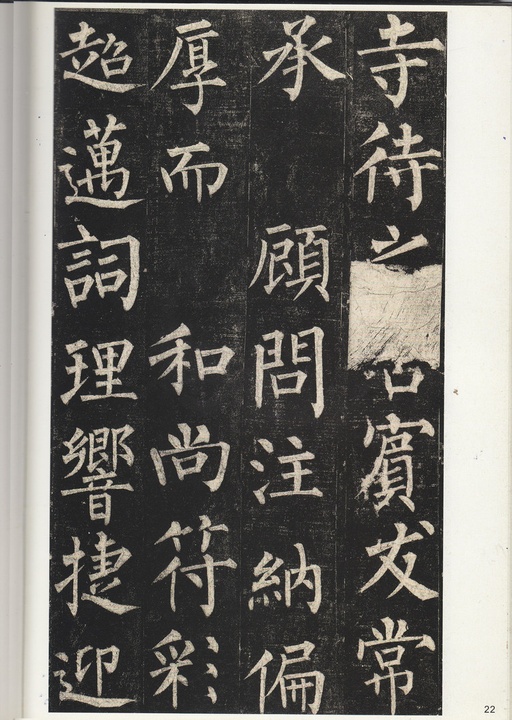 寺待之賓友常
承顧問注納偏
厚而和尚符彩
超邁詞理響捷迎
22